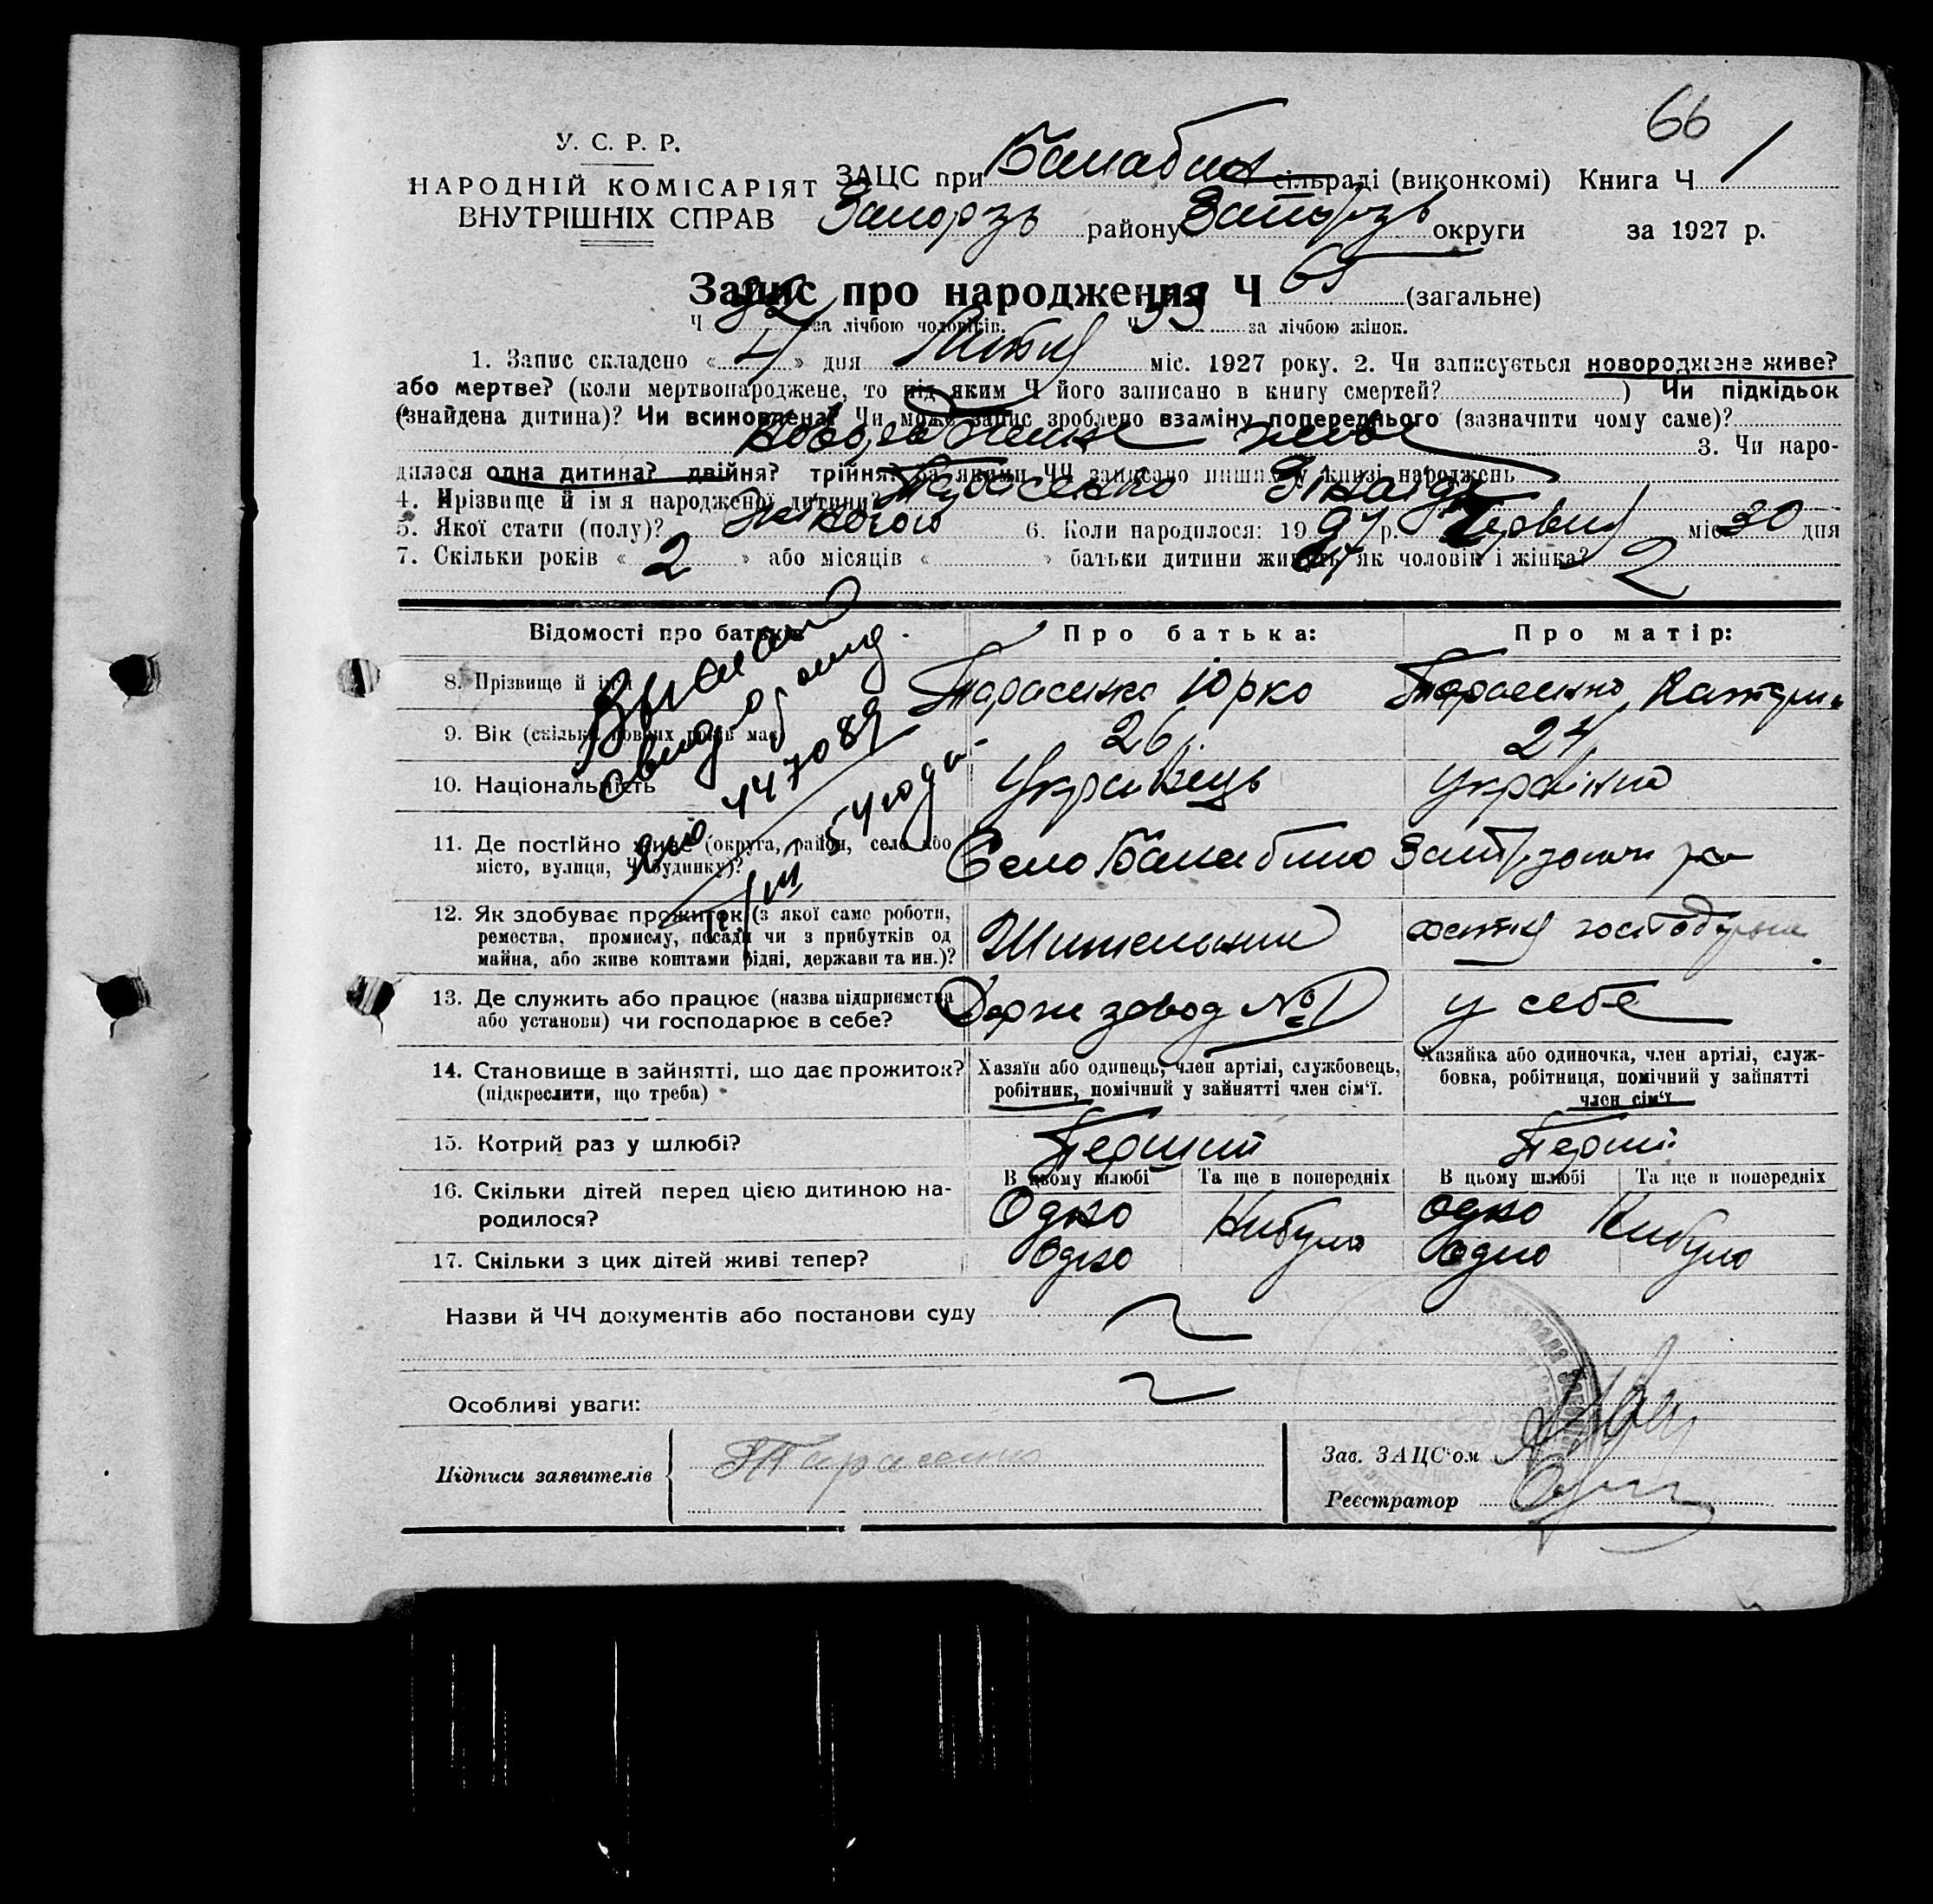 66
У. С. Р. Р.
НАРОДНІЙ КОМІСАРІЯТ
ВНУТРІШНІХ СПРАВ
ЗАЦС при Балабин сільраді (виконкомі) Книга Ч 1
Запорзь району Запорзь округи за 1927 р.
Запис про народження Ч 65 (загальне)
Ч 32 за лічбою чоловіків. Ч 33 за лічбою жінок.
1. Запис складено « 4 » дня Липня міс. 1927 року. 2. Чи записується новороджене живе?
або мертве? (коли мертвонароджене, то під яким Ч його записано в книгу смертей? ) Чи підкідьок
(знайдена дитина)? Чи всиновлена? Чи може запис зроблено взаміну попереднього (зазначити чому саме)?
новорожденне живе 3. Чи наро-
дилася одна дитина? двійня? трійня? за якими ЧЧ записано инших у книзі народжень
4. Прізвище й ім'я народженої дитини? Тарасенко Зінаїда
5. Якої статі (полу)? Жіночого 6. Коли народилося: 1927 р. Червня міс 30 дня
7. Скільки років « 2 » або місяців « » батьки дитини живуть як чоловік і жінка? 2
Відомості про батьків Про батька: Про матір:
8. Прізвище й ім'я Тарасенко Юрко Тарасенко Катери
9. Вік (скільки повних років має) 26 24
10. Національність Українець Українка
11. Де постійно живе (округа, район, село або
місто, вулиця, Ч будинку)? Село Балабино
12. Як здобуває прожиток (з якої само роботи,
ремества, промислу, посади чи з прибутків од
майна, або живе коштами рідні, держави та ин.)?
13. Де служить або працює (назва підприємства
або установи) чи господарює в себе? Держ завод № 1 у себе
14. Становище в зайнятті, що дає прожиток?
(підкреслити, що треба)
Хазяїн або одинець, член артілі, службовець,
робітник, помічний у зайнятті член сім'ї.
Хазяйка або одиночка, член артілі, служ-
бовка, робітниця, помічний у зайнятті
член сім'ї
15. Котрий раз у шлюбі? Перший Перший
В цьому шлюбі Та ще в попередніх В цьому шлюбі Та ще в попередніх
16. Скільки дітей перед цією дитиною на-
родилося? Одно Нибуло одно Нибуло
17. Скільки з цих дітей живі тепер? Одно одно
Назви й ЧЧ документів або постанови суду
Особливі уваги:
Підписи заявителів Тарасенко
Зав. ЗАЦС'ом
Реєстратор